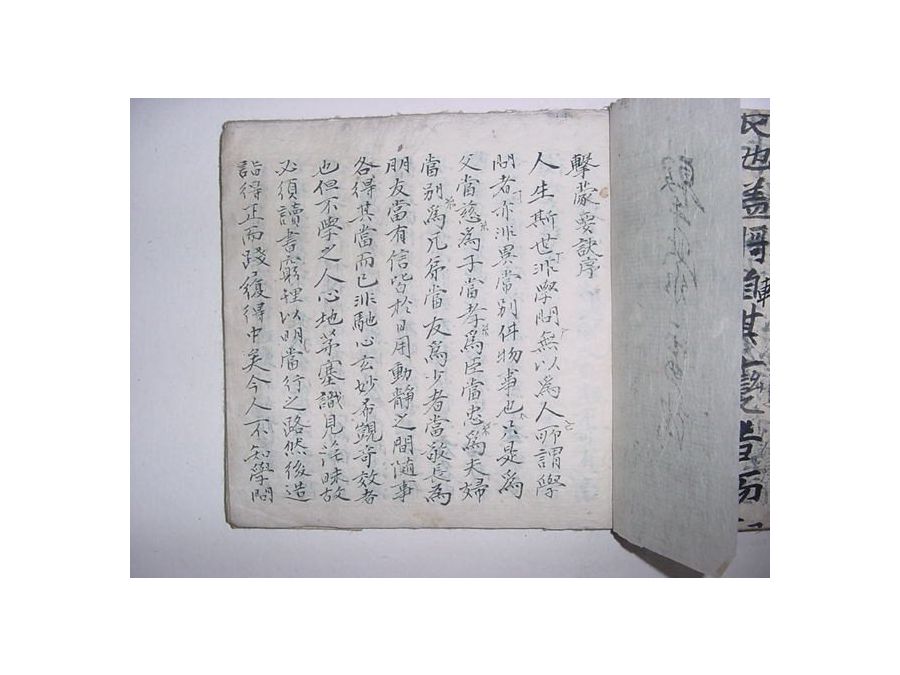 也盖將自其變者而
擊蒙要訣序
人生斯世非學問無以爲人所謂學
問者亦非異常別件物事也只是爲
父當慈爲子當孝爲臣當忠爲夫婦
當別爲兄弟當友爲少者當敬長爲
朋友當有信皆於日用動靜之間随事
各得其當而已非馳心玄妙希覬奇效者
也但不學之人心地茅塞識見茫昧故
必須讀書窮理以明當行之路然後造
詣得正而踐履得中矣今人不知學問